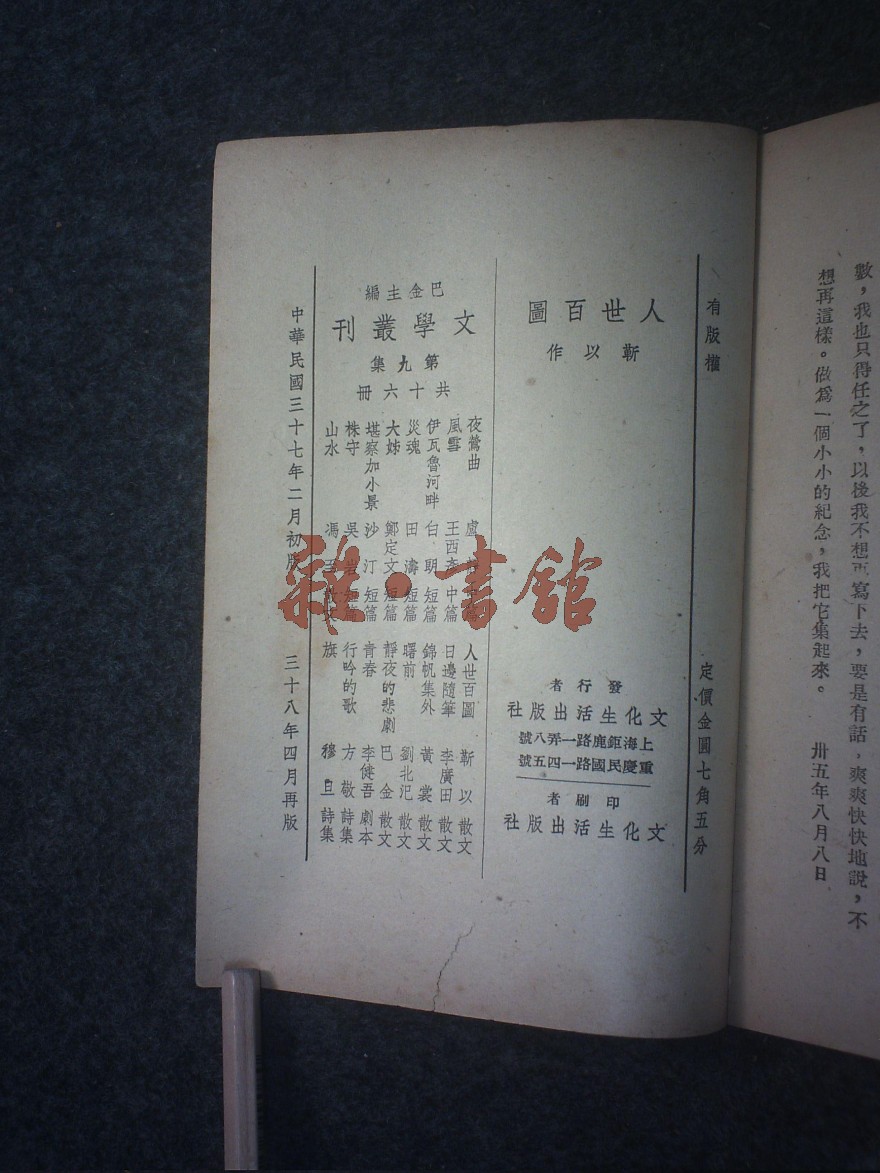 數，我也只得任之了，以後我不想再寫下去，要是有話，爽爽快快地說，不
想再這樣。做爲一個小小的紀念，我把它集起來。 卅五年八月八日
有版權
定價金圓七角五分
人世百圖
靳以作
發行者
文化生活出版社
上海鉅鹿路一弄八號
重慶民國路一四五號
印刷者
文化生活出版社
巴金主編
文學叢刊
第九集
共十六冊
夜鶯曲
風雪 王西彥 中篇
伊瓦魯河畔 白朗 短篇
災魂 田濤 短篇
大姊 鄭定文 短篇
堪察加小景 沙汀 短篇
株守 吳岩 短篇
山水 馮至
人世百圖 靳以 散文
日邊隨筆 李廣田 散文
錦帆集外 黃裳 散文
曙前 劉北汜 散文
靜夜的悲劇 巴金 散文
青春 李健吾 劇本
行吟的歌 方敬 詩集
旗 穆旦 詩集
中華民國三十七年二月初版 三十八年四月再版
雜·書館